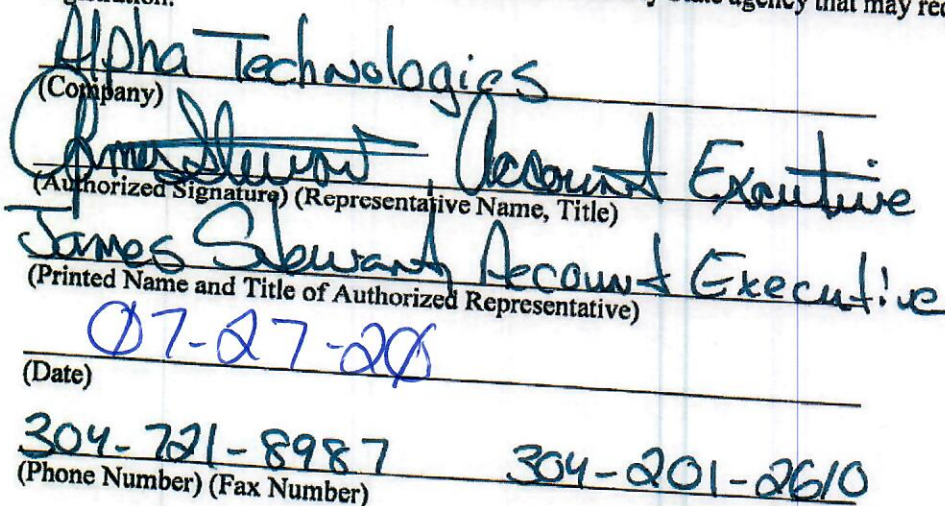 gistration.
y State agency that may req
Alpha Technologies
(Company)
James Stewart, Account Executive
(Authorized Signature) (Representative Name, Title)
James Stewart, Account Executive
(Printed Name and Title of Authorized Representative)
07-27-20
(Date)
304-721-8987 304-201-2610
(Phone Number) (Fax Number)